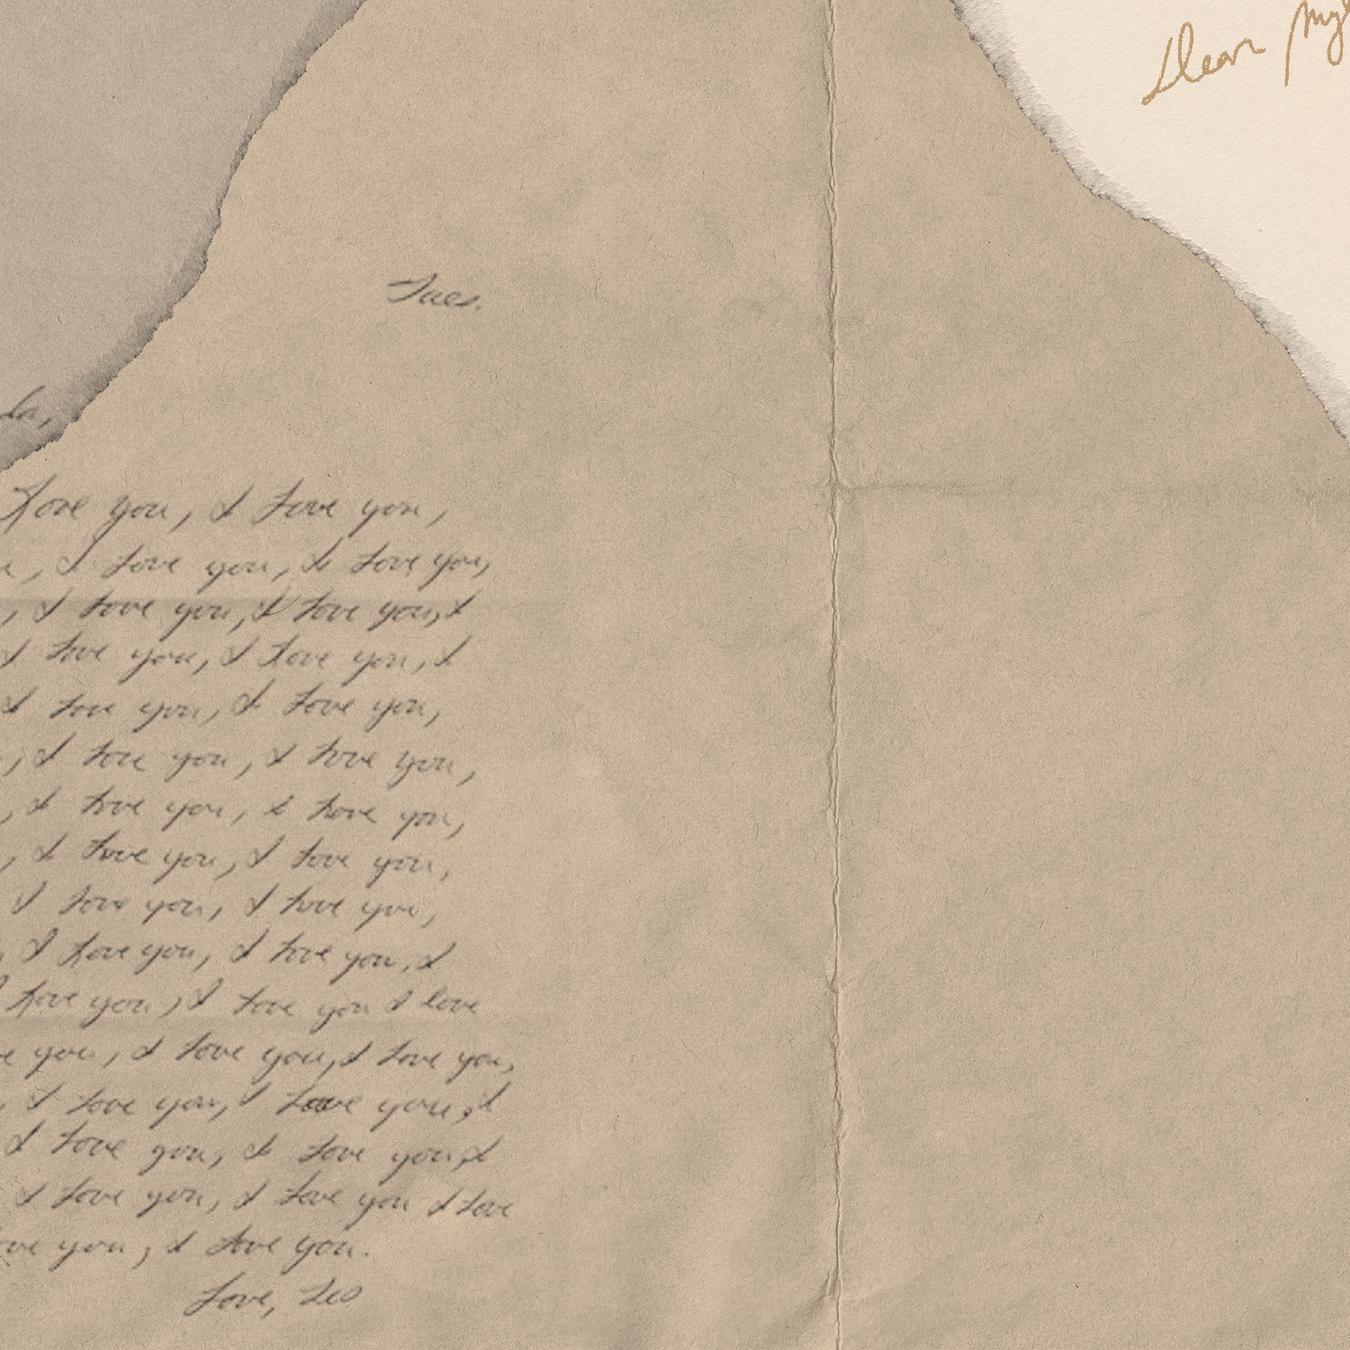 Dear
Tues.
Love you, I Love you,
, I Love you, I Love you,
, I Love you, I Love you, I
I Love you, I Love you, I
I Love you, I Love you,
, I Love you, I Love you,
, I Love you, I Love you,
, I Love you, I Love you,
I Love you, I Love you,
, I Love you, I Love you, I
Love you, I Love you I love
you, I Love you, I Love you,
, I Love you, I Love you, I
I Love you, I Love you, I
I Love you, I Love you I Love
you, I Love you.
Love, Leo